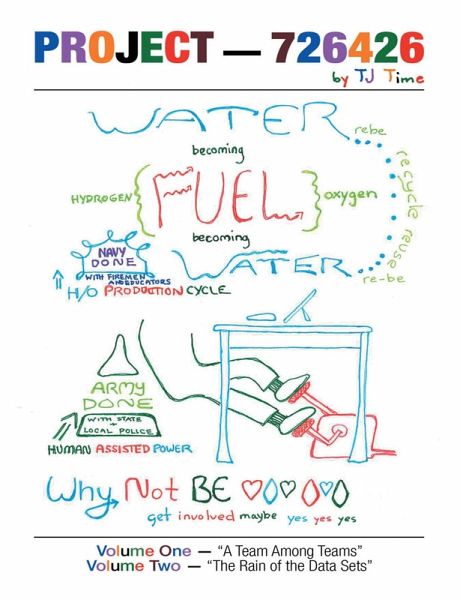 PROJECT — 726426
by TJ Time
WATER
rebe
becoming
recycle reuse
HYDROGEN { FUEL } oxygen
becoming
NAVY
DONE
WITH FIREMEN
AND EDUCATORS
WATER
re-be
H/O PRODUCTION CYCLE
ARMY
DONE
WITH STATE
+
LOCAL POLICE
HUMAN ASSISTED POWER
Why Not BE
get involved maybe yes yes yes
Volume One — “A Team Among Teams”
Volume Two — “The Rain of the Data Sets”